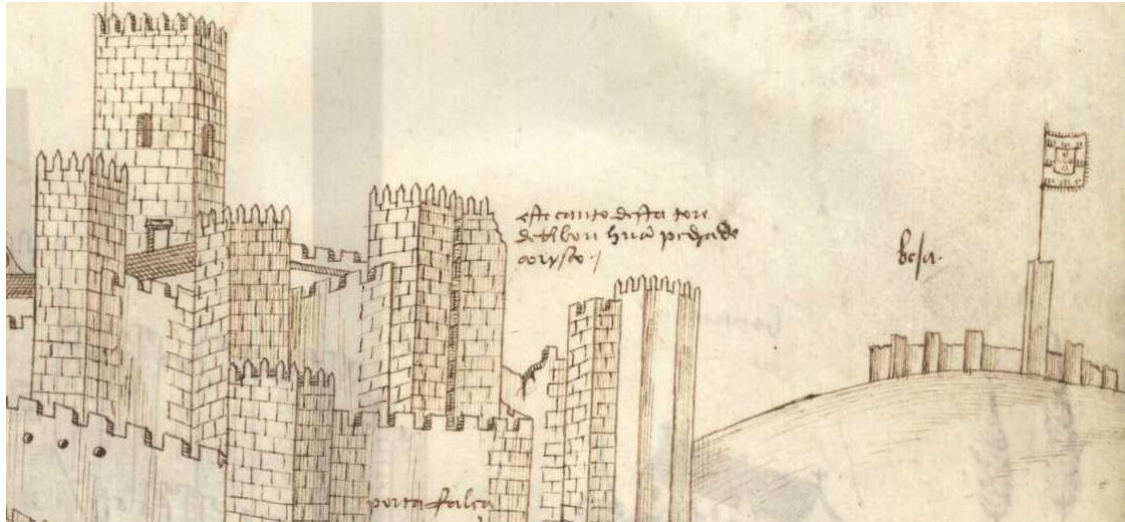 este canto desta tore
deRibou hũa pedra de
corysco ·/
beja.
porta falsa